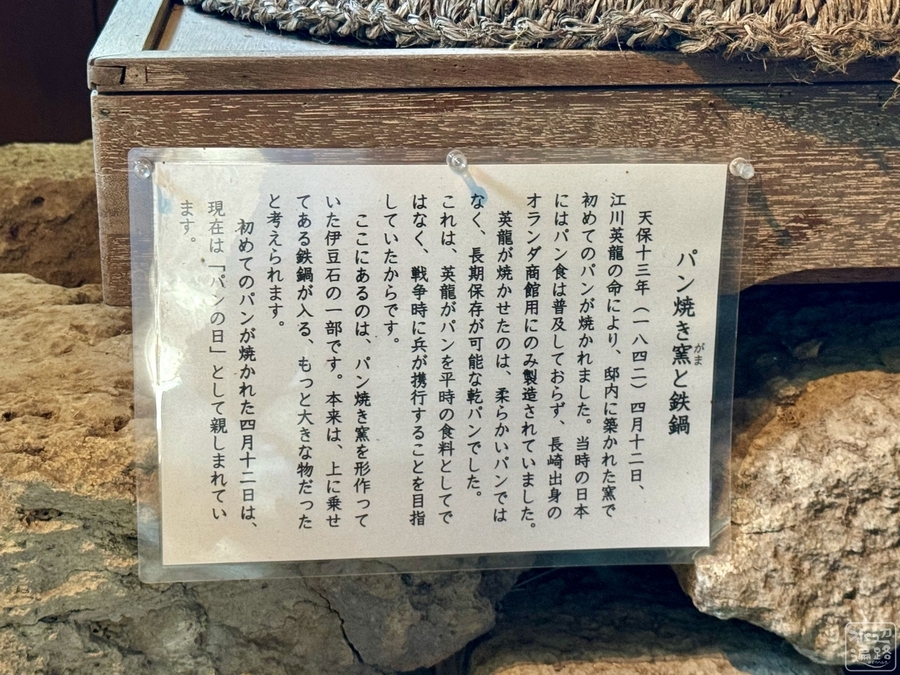 パン焼き窯と鉄鍋
がま
天保十三年（一八四二）四月十二日、
江川英龍の命により、邸内に築かれた窯で
初めてのパンが焼かれました。当時の日本
にはパン食は普及しておらず、長崎出身の
オランダ商館用にのみ製造されていました。
英龍が焼かせたのは、柔らかいパンでは
なく、長期保存が可能な乾パンでした。
これは、英龍がパンを平時の食料としてで
はなく、戦争時に兵が携行することを目指
していたからです。
ここにあるのは、パン焼き窯を形作って
いた伊豆石の一部です。本来は、上に乗せ
てある鉄鍋が入る、もっと大きな物だった
と考えられます。
初めてのパンが焼かれた四月十二日は、
現在は「パンの日」として親しまれてい
ます。